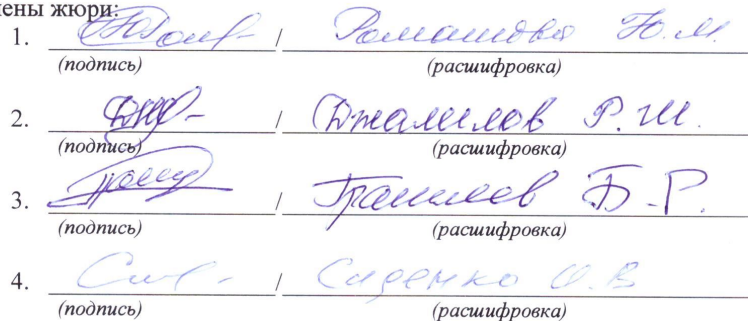 лены жюри:
1. / Ромашова Ю.М.
(подпись) (расшифровка)
2. / Джалилов Р.Ш.
(подпись) (расшифровка)
3. / Б.Р.
(подпись) (расшифровка)
4. / Сиденко И.В
(подпись) (расшифровка)